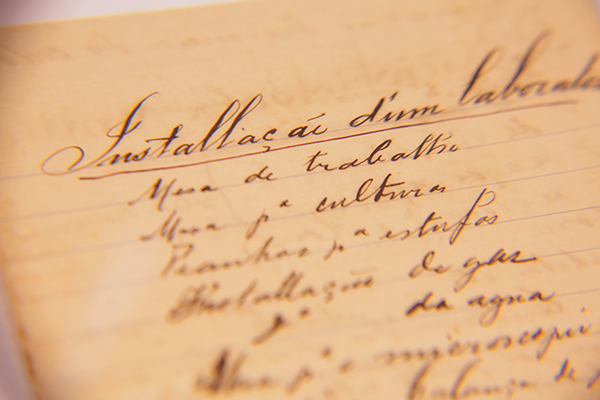 Installação d'um laborato
Mesa de trabalho
Mesa pª culturas
Pranchas pª estufas
Installação de gaz
dª da agua
Mesa pª o microscopio
balança de